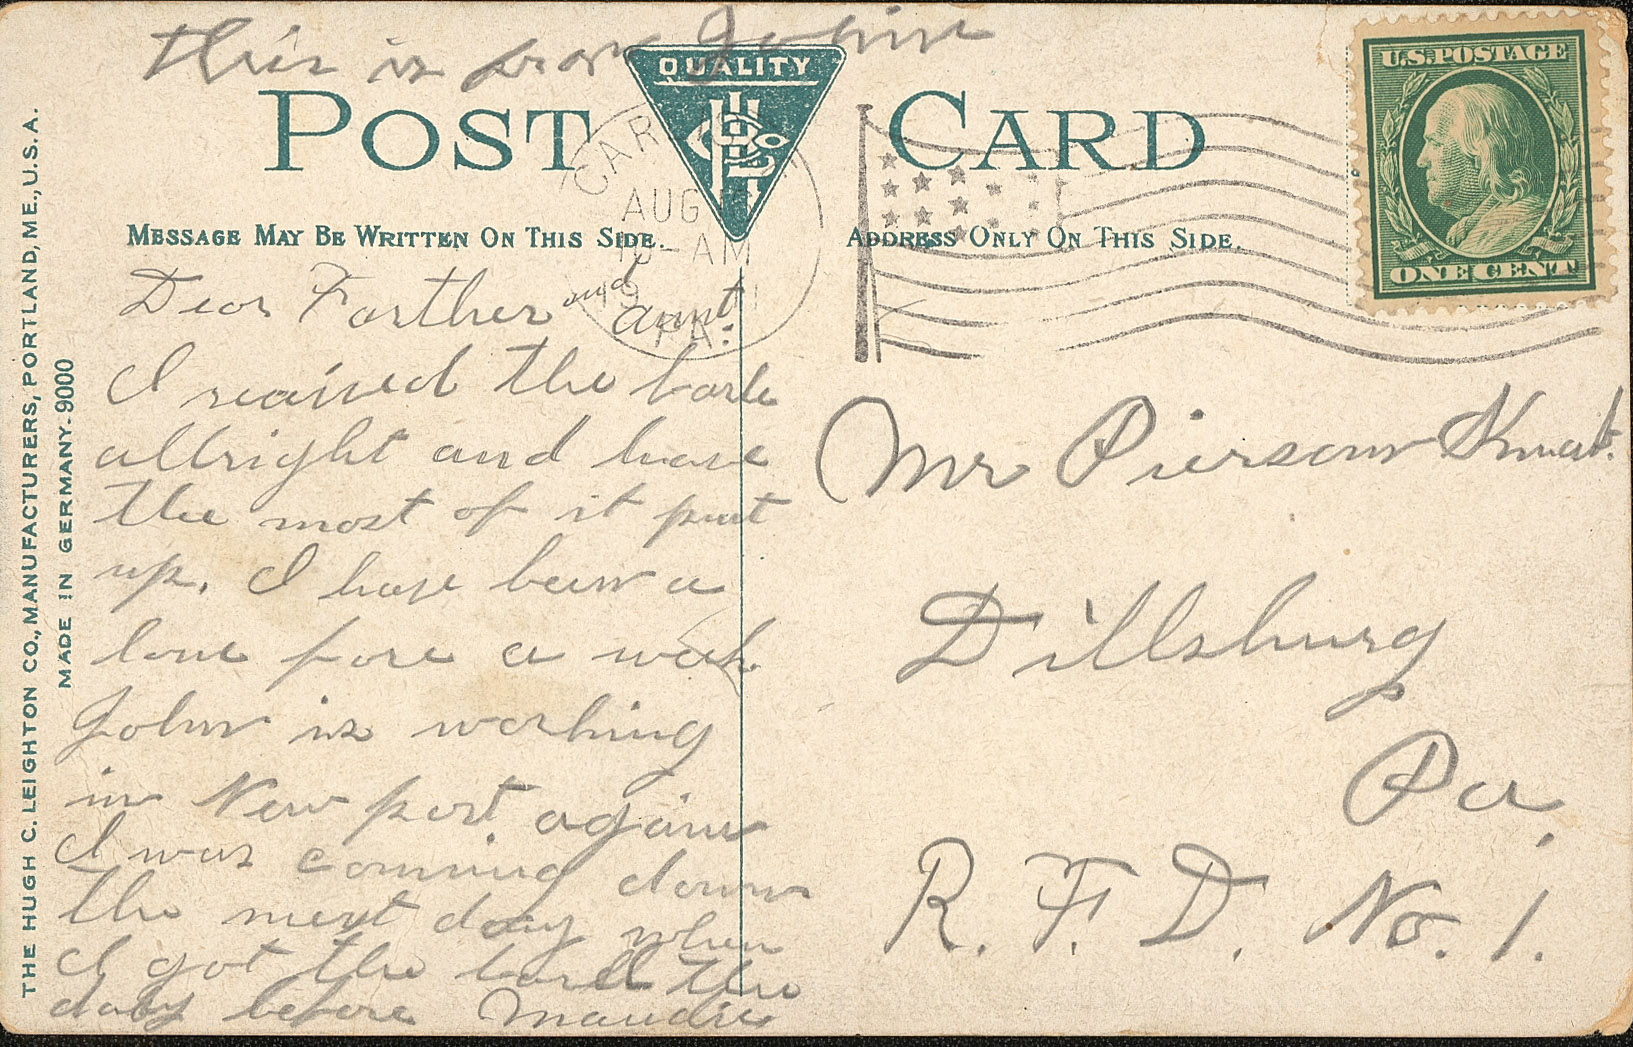 this is from John
QUALITY
POST CARD
U.S. POSTAGE
ONE CENT
CAR
AUG
10-AM
19 11
PA.
MESSAGE MAY BE WRITTEN ON THIS SIDE.
ADDRESS ONLY ON THIS SIDE.
THE HUGH C. LEIGHTON CO., MANUFACTURERS, PORTLAND, ME., U.S.A.
MADE IN GERMANY. 9000
Dear Farther and aunt
I reaived the
allright and have
the most of it put
up. I have been a
lone fore a week
John is working
in New port again
I was comming down
the next day when
I got the the
day before Maudie
Mr Pierson
Dillsburg
Pa,
R. F. D. No. 1.